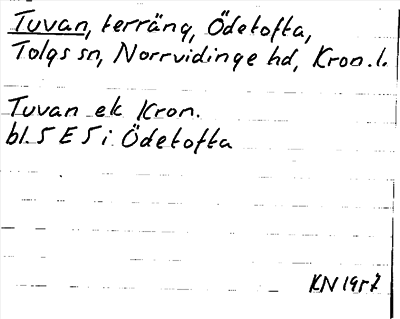 Tuvan, terräng, Ödetofta,
Tolgs sn, Norrvidinge hd, Kron. l.
Tuvan ek Kron.
bl. 5 E 5 i Ödetofta
KN 1957